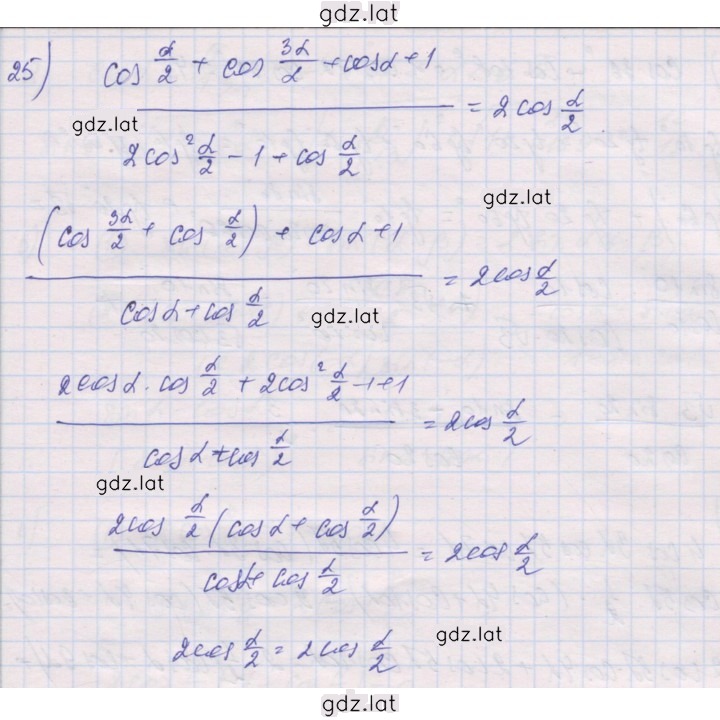 gdz.lat
25) cos α/2 + cos 3α/2 + cosα + 1
= 2cos α/2
gdz.lat
2cos² α/2 - 1 + cos α/2
gdz.lat
(cos 3α/2 + cos α/2) + cosα + 1
= 2cos α/2
cosα + cos α/2
gdz.lat
2cosα · cos α/2 + 2cos² α/2 - 1 + 1
= 2cos α/2
cosα + cos α/2
gdz.lat
2cos α/2 (cosα + cos α/2)
= 2cos α/2
cosα + cos α/2
2cos α/2 = 2cos α/2
gdz.lat
gdz.lat